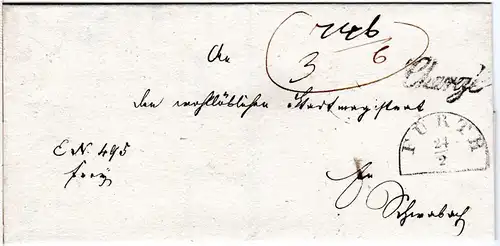 An
3
6
Chargé
den wohllöblichen Stadtmagistrat
FÜRTH
24
2
E. N. 495
frey
Schwabach